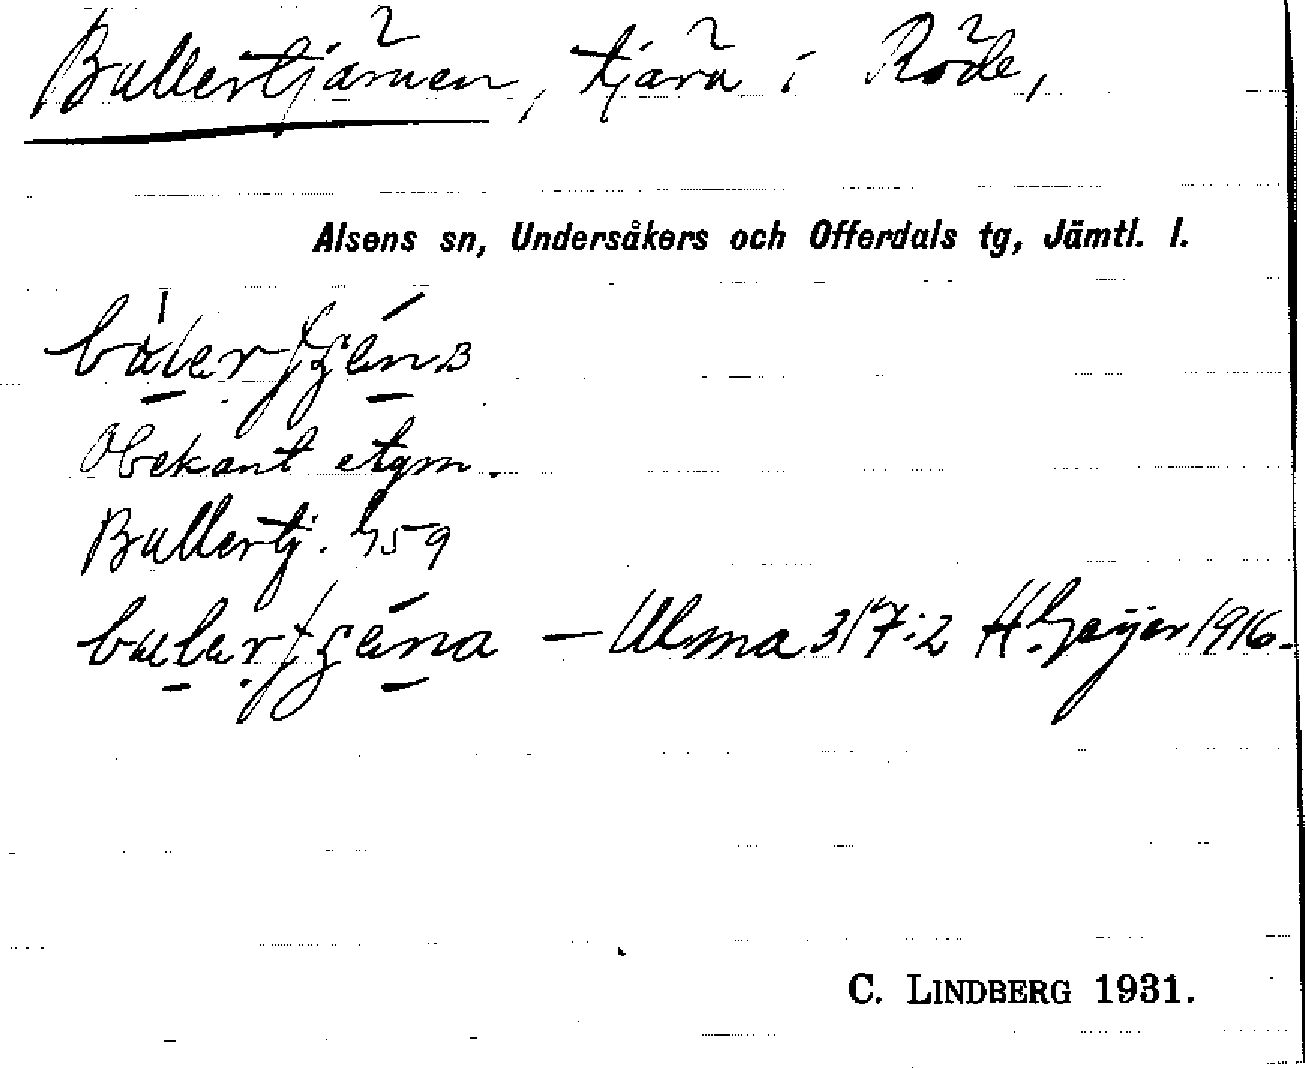 Bullertjärnen, tjärn i Röde,
Alsens sn, Undersåkers och Offerdals tg, Jämtl. l.
Obekant etym.
Bullertj. h59
— Ulma 317:2 H. Geijer 1916.
C. LINDBERG 1931.